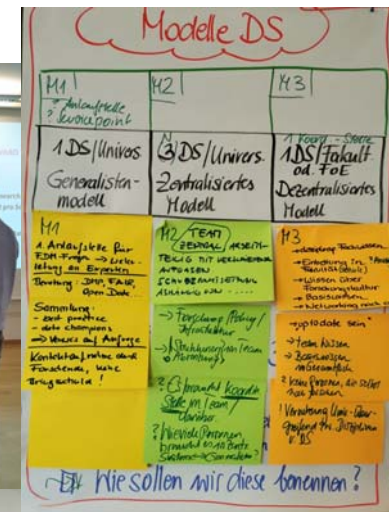 Modelle DS
M1
? Anlaufstelle
? Servicepoint
M2
M3
1 DS/Univers.
Generalisten-
modell
3 DS/Univers.
Zentralisiertes
Modell
1 Koord.-Stelle
1 DS/Fakult
od. FoE
Dezentralisiertes
Modell
M1
1. Anlaufstelle für
FDM-Fragen → Weiter-
leitung an Experten
Beratung: DMP, FAIR,
Open Data
Sammlung
- best practice
- data champions
→ Verweis auf Anfrage
Kontaktaufnahme durch
Forschende, keine
Bringschuld!
M2 TEAM
ZENTRAL ARBEITS-
TEILIG MIT
AUFGABEN
SCHWERPUNKTSETZUNG
ABHÄNGIG VON
→ Forschung/Policy/
Infrastruktur
→ im Team
? Es braucht Koordi
Stelle im Team/
darüber.
? Wieviele Personen
braucht es
M3
→ Fachwissen
→ Einbettung in
→ Wissen über
Forschungskultur
→ Basiswissen
→ Networking
→ "up to date sein"
→ Team Wissen
→ Basiswissen
? keine Personen, die selbst
! Vernetzung Uni-Über-
greifend in Disziplin
v. DS
Wie sollen wir diese benennen?